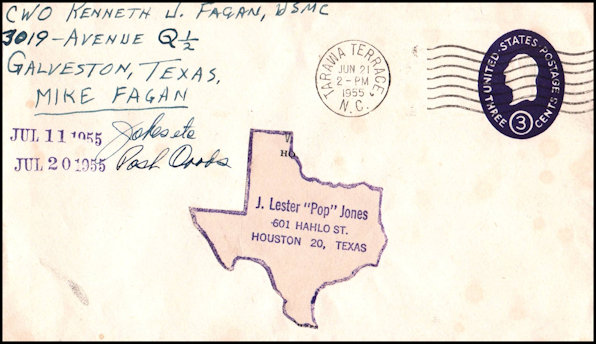 CWO KENNETH J. FAGAN, USMC
3019-AVENUE Q½
GALVESTON, TEXAS.
MIKE FAGAN
JUL 11 1955
JUL 20 1955
TARAWA TERRACE,
JUN 21
2-PM
1955
N.C.
UNITED STATES POSTAGE
THREE 3 CENTS
J. Lester "Pop" Jones
601 HAHLO ST.
HOUSTON 20, TEXAS